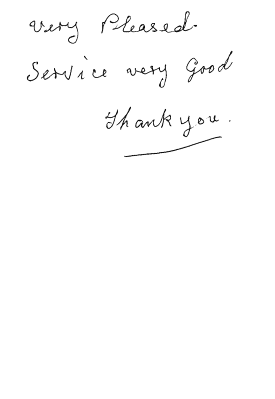 very Pleased.
Service very Good
Thank you.